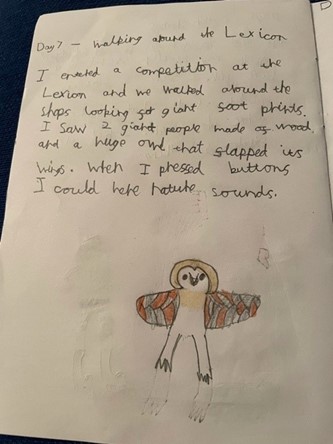 Day 7 – walking around the Lexicon
I entered a competition at the
Lexion and we walked around the
shops looking for giant foot prints.
I saw 2 giant people made of wood
and a huge owl that flapped its
wings. When I pressed buttons
I could here nature sounds.
D